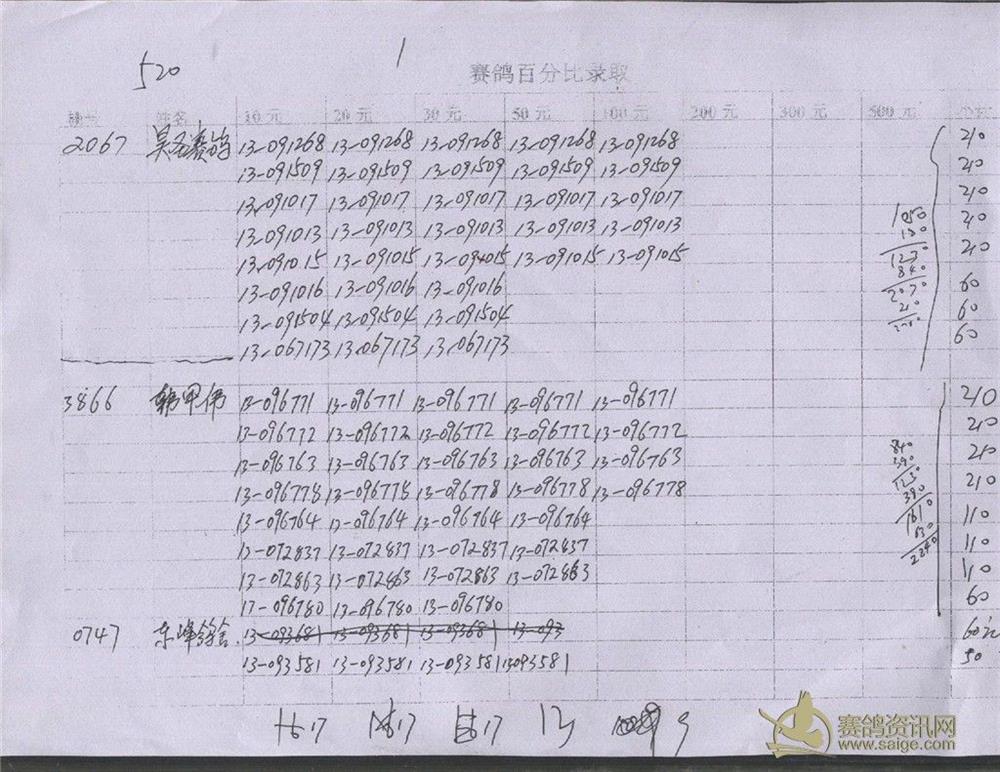 520 1
赛鸽百分比录取
棚号 姓名 10元 20元 30元 50元 100元 200元 300元 500元
2067 赛鸽 13-091268 13-091268 13-091268 13-091268 13-091268 210
13-091509 13-091509 13-091509 13-091509 13-091509 210
13-091017 13-091017 13-091017 13-091017 13-091017 210
13-091013 13-091013 13-091013 13-091013 13-091013 210
13-091015 13-091015 13-091015 13-091015 13-091015 210
13-091016 13-091016 13-091016 60
13-091504 13-091504 13-091504 60
13-067173 13-067173 13-067173 60
3866 韩甲伟 13-096771 13-096771 13-096771 13-096771 13-096771 210
13-096772 13-096772 13-096772 13-096772 13-096772 210
13-096763 13-096763 13-096763 13-096763 13-096763 210
13-096778 13-096778 13-096778 13-096778 13-096778 210
13-096764 13-096764 13-096764 13-096764 110
13-072837 13-072837 13-072837 13-072837 110
13-072863 13-072863 13-072863 13-072863 110
17-096780 13-096780 13-096780 60
0747 东峰 13-093681 13-093681 13-093681 13-093 60
13-093581 13-093581 13-093581 13093581
17 17 17 13 9
赛鸽资讯网
www.saige.com